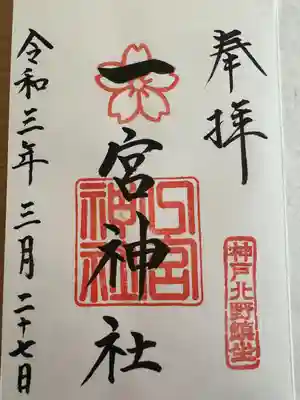 奉拝
神戸北野鎮坐
一宮神社
一宮神社
令和三年三月二十七日